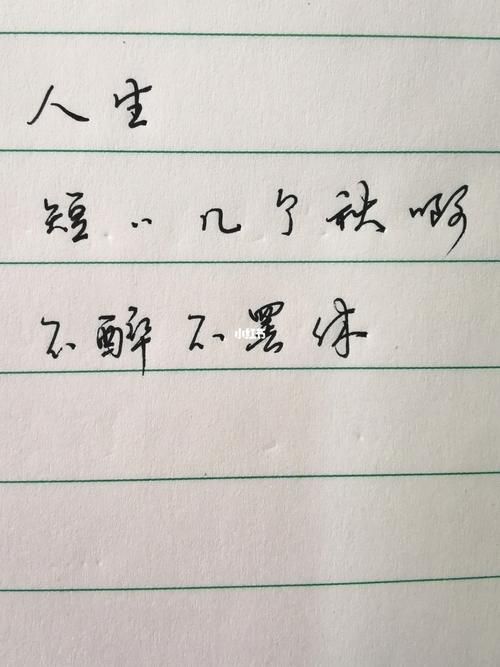 人生
短々几个秋啊
不醉不罢休
小红书